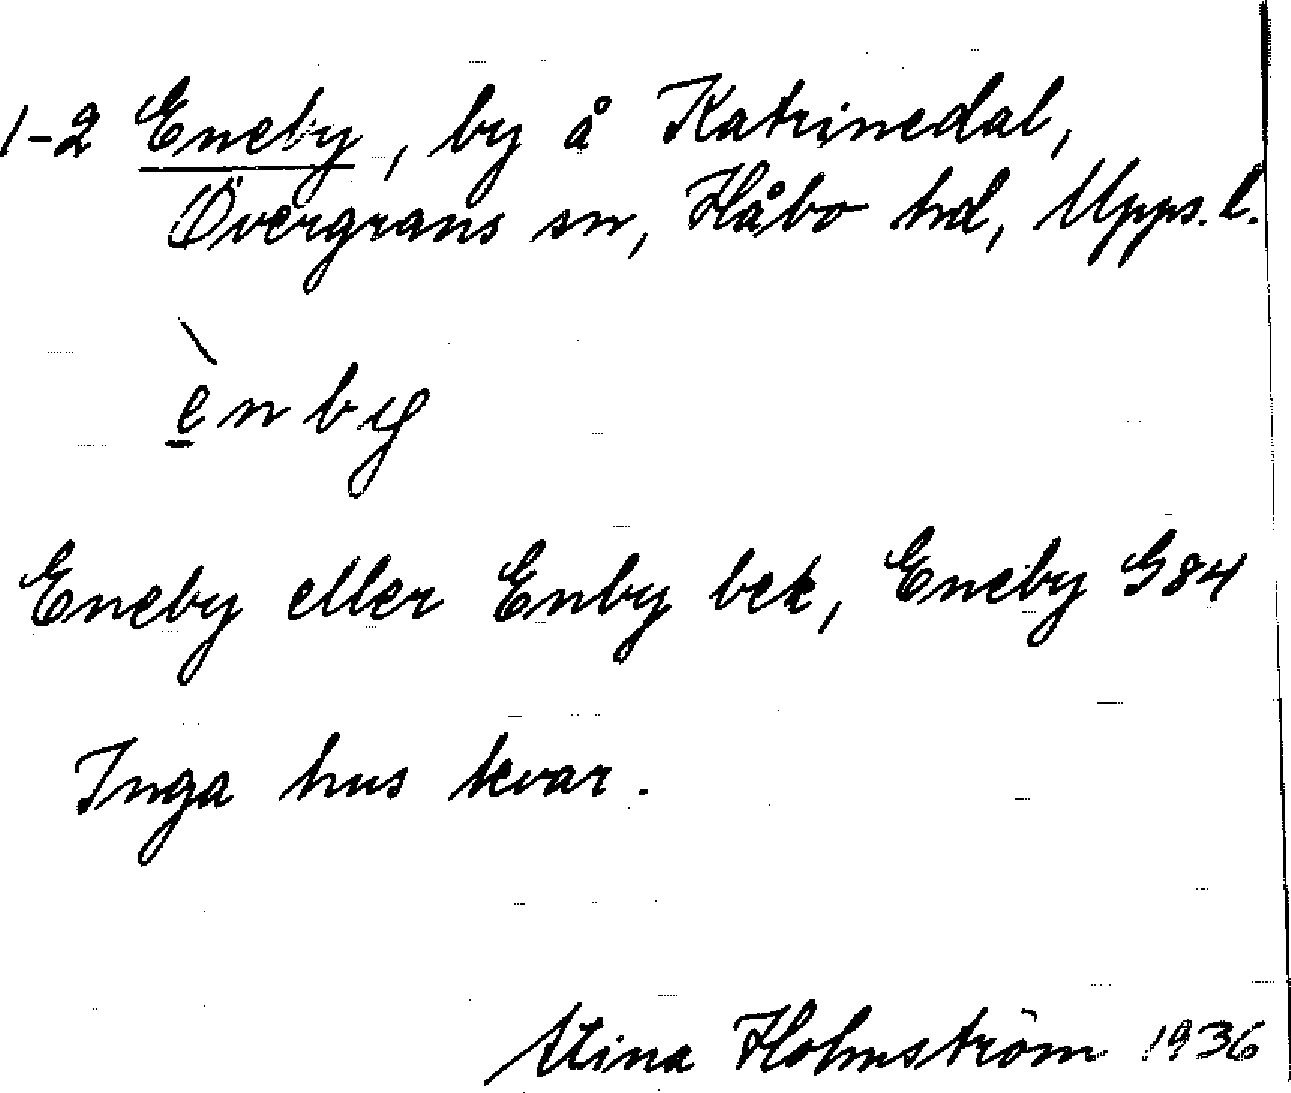 1-2 Eneby, by å Katrinedal,
Övergrans sn, Håbo hd, Upps. l.
è̱nby
Eneby eller Enby bek, Eneby G84
Inga hus kvar.
Stina Holmström 1936